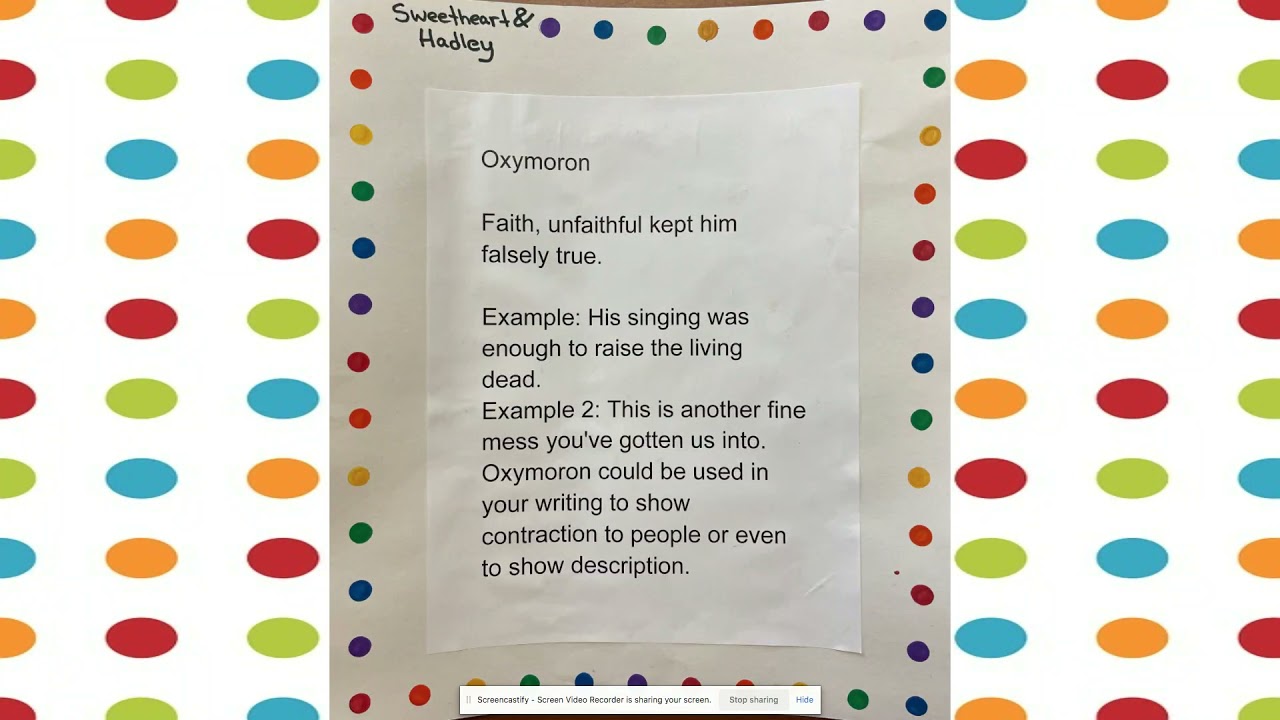 Sweetheart &
Hadley
Oxymoron
Faith, unfaithful kept him
falsely true.
Example: His singing was
enough to raise the living
dead.
Example 2: This is another fine
mess you've gotten us into.
Oxymoron could be used in
your writing to show
contraction to people or even
to show description.
Screencastify - Screen Video Recorder is sharing your screen. Stop sharing Hide